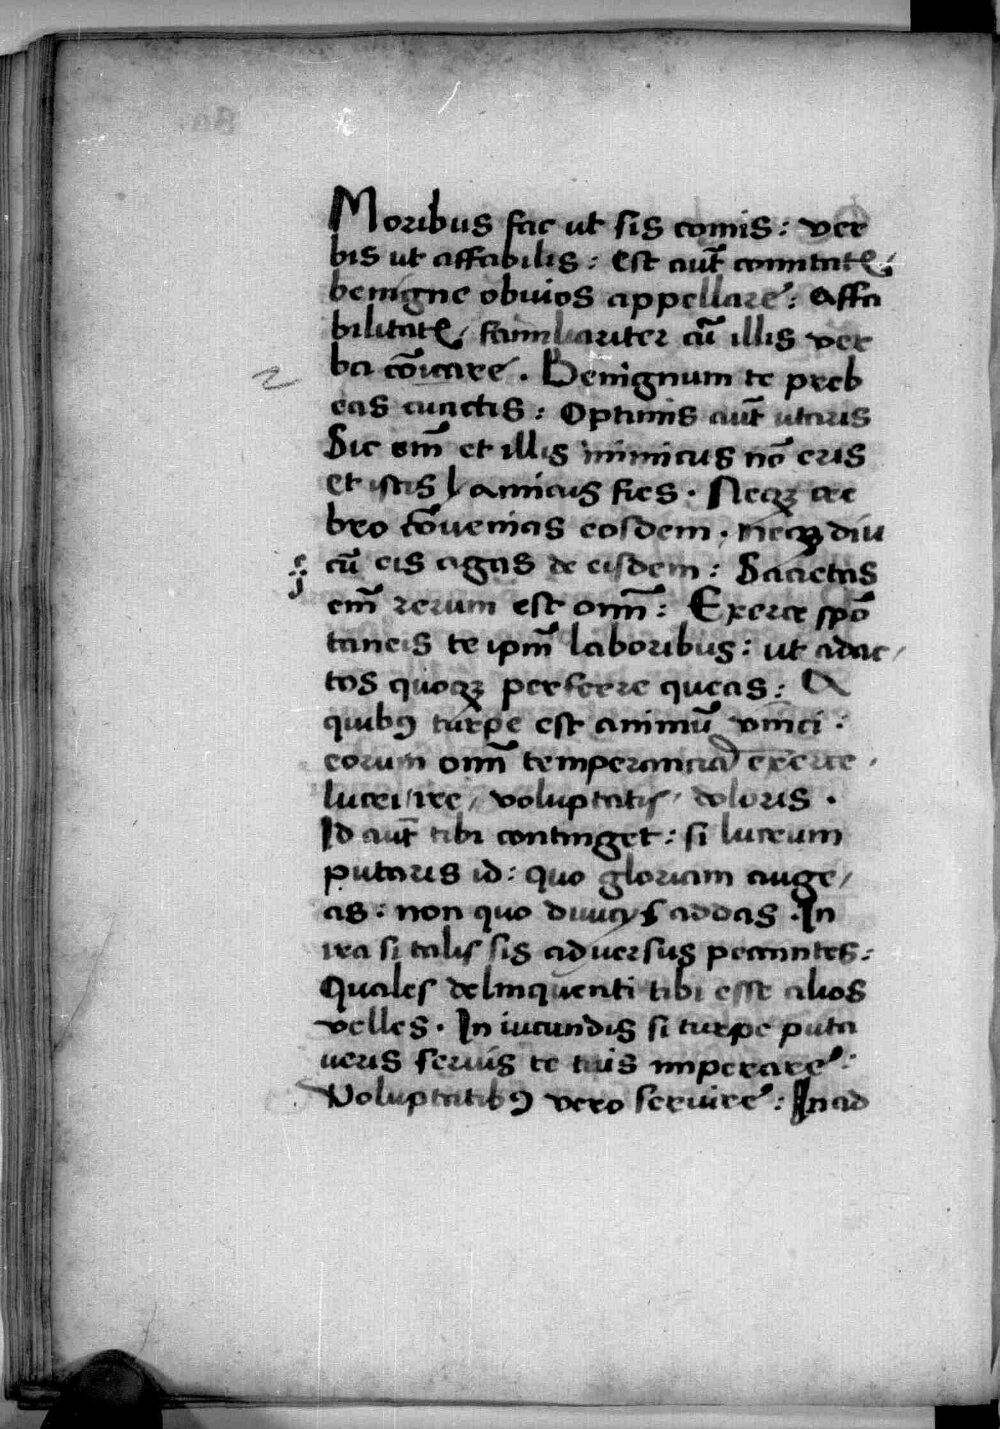 Moribus fac ut sis comis: ver
bis ut affabilis: Est aut̃ comitatẽ:
benigne obuios appellare: Affa
bilitatẽ/ familiariter cũ illis ver
ba cõicare. Benignum te preb
eas cunctis: Optimis aut̃ utaris
Sic em̃ et illis inimicus nõ eris
et istis amicus fies. Neqꝫ cre
bro cõuenias eosdem. neqꝫ diu
cũ eis agas de eisdem: Sacietas
em̃ rerum est om̃: Exerce spõ
taneis te ipm̃ laboribus: ut adac/
tos quoqꝫ perferre queas: A
quibꝰ turpe est animũ vinci:
eorum om̃ temperanciã exerce.
lucri/ ire/ voluptatis/ doloris.
Id aut̃ tibi continget: si lucrum
putaris id: quo gloriam auge/
as: non quo diuicijs addas. In
ira si talis sis aduersus peccantes:
Quales delinquenti tibi esse alios
velles. In iucundis si turpe puta
ueris seruis te tuis imperare:
Voluptatibꝰ vero seruire: In ad